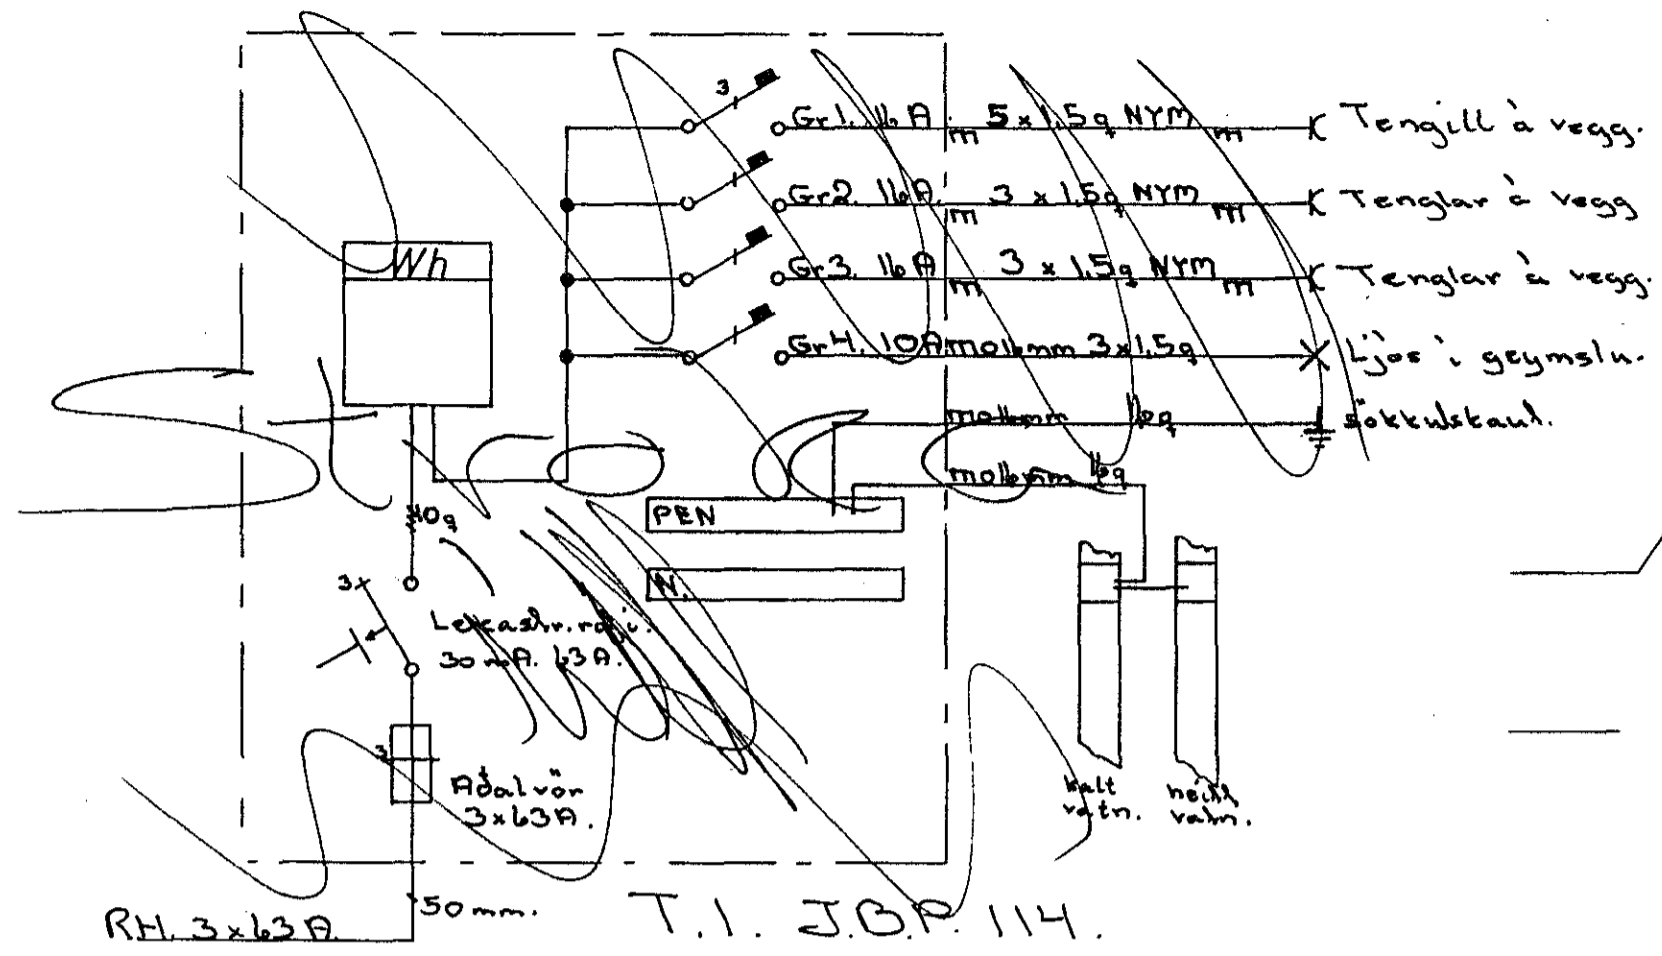 3 Gr1. 16A 5x1,5q NYM Tengill à vegg.
Gr2. 16A. 3 x 1,5q NYM Tenglar à vegg
Wh Gr3. 16A 3 x 1,5q NYM Tenglar à vegg.
Gr4. 10A mo16mm 3x1,5q Ljòs ì geymslu.
mo16mm 16q sökkulskaut.
mo16mm 16q
10q PEN
N.
3
Lekastr.rofi.
30mA. 63A.
3
Aðalvör
3x63A.
kalt
vatn.
heitt
vatn.
50mm.
RH. 3x63A. T.I. J.B.P. 114.